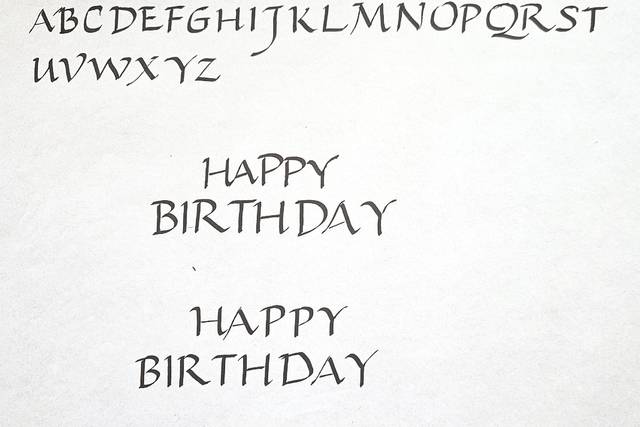 ABCDEFGHIJKLMNOPQRST
UVWXYZ
HAPPY
BIRTHDAY
HAPPY
BIRTHDAY